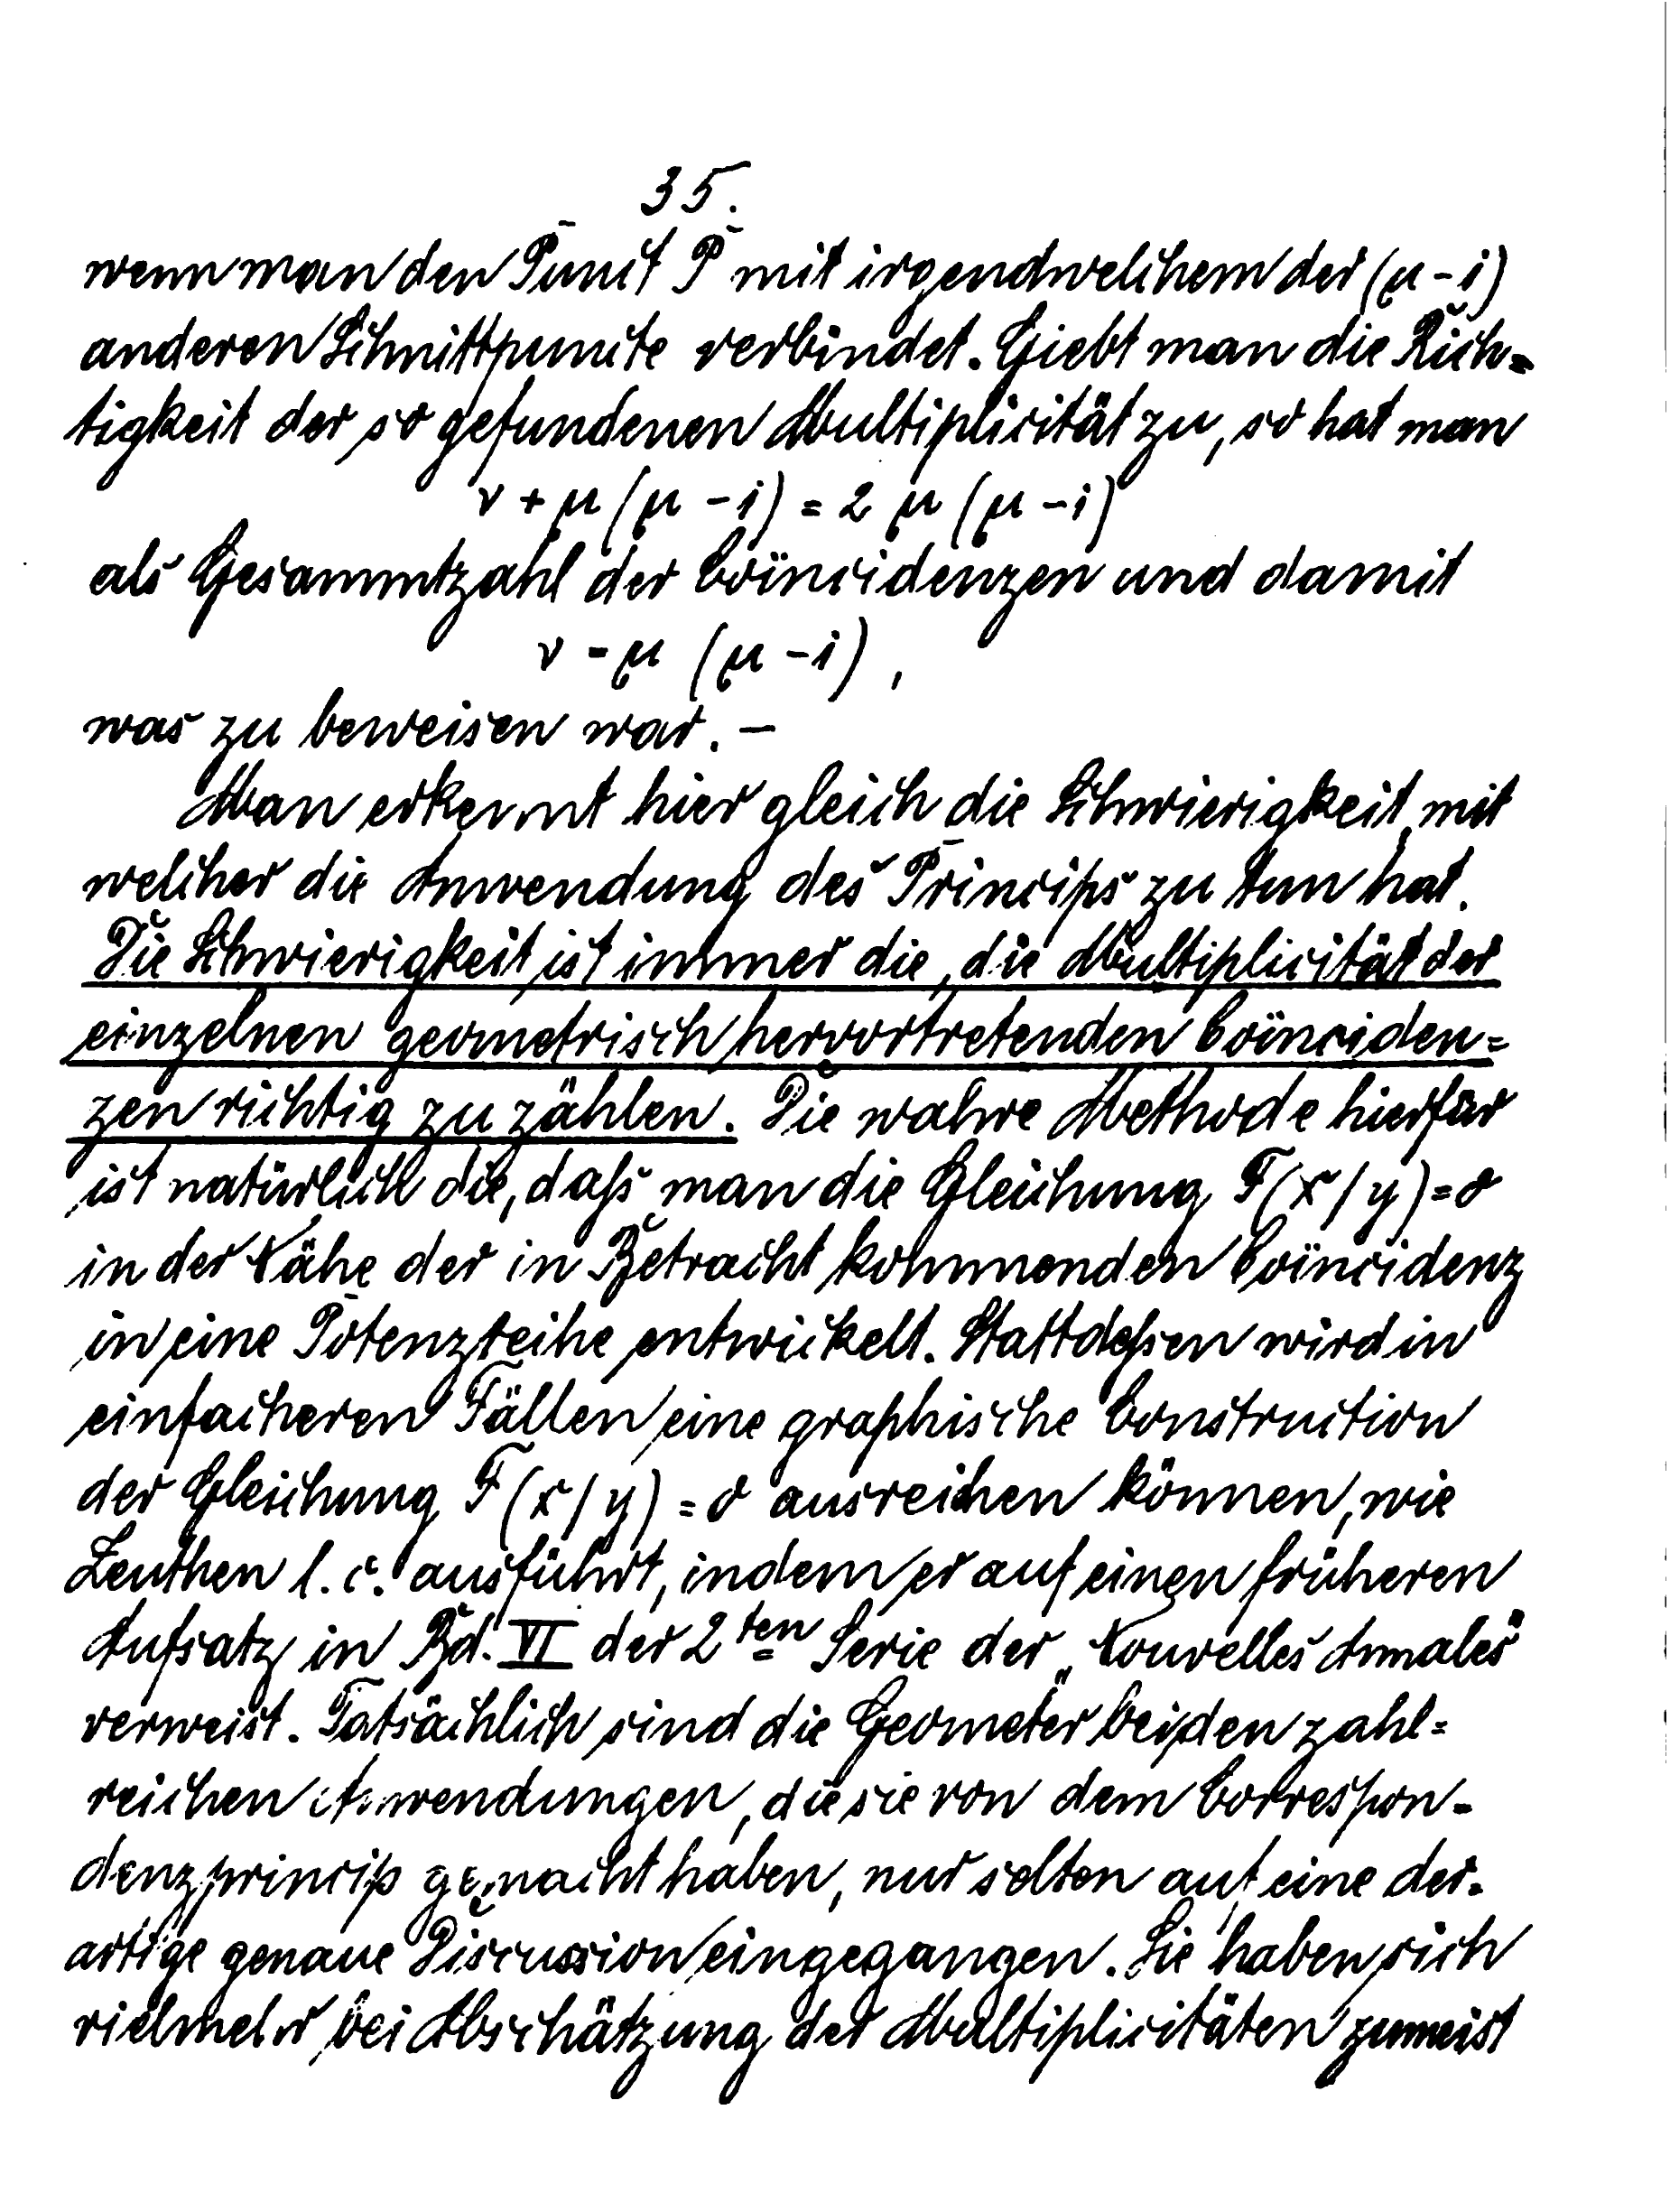 35.
wenn man den Punct P mit irgendwelchem der (μ - i)
anderen Schnittpuncte verbindet. Giebt man die Rich=
tigkeit der so gefundenen Multiplicität zu, so hat man
ν + μ (μ - i) = 2 μ (μ - i)
als Gesammtzahl der Coïncidenzen und damit
ν = μ (μ - i),
was zu beweisen war. —
Man erkennt hier gleich die Schwierigkeit, mit
welcher die Anwendung des Princips zu tun hat.
Die Schwierigkeit ist immer die, die Multiplicität der
einzelnen geometrisch hervortretenden Coïnciden=
zen richtig zu zählen. Die wahre Methode hierfür
ist natürlich die, daß man die Gleichung F(x/y)=0
in der Nähe der in Betracht kommenden Coïncidenz
in eine Potenzreihe entwickelt. Stattdeßen wird in
einfacheren Fällen eine graphische Construction
der Gleichung F(x/y)=0 ausreichen können, wie
Zeuthen l. c. ausführt, indem er auf einen früheren
Aufsatz in Bd. VI der 2ten Serie der „Nouvelles Annales"
verweist. Tatsächlich sind die Geometer bei den zahl=
reichen Anwendungen, die sie von dem Correspon=
denzprincip gemacht haben, nur selten auf eine der=
artige genaue Discussion eingegangen. Sie haben sich
vielmehr bei Abschätzung der Multiplicitäten zumeist